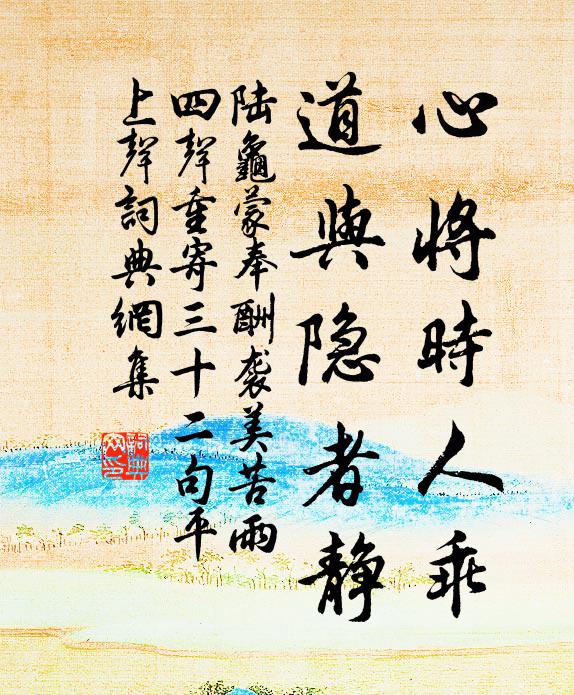 心將時人乖
道與隐者靜
陆龜蒙奉酬袭美苦雨
四聲重寄三十二句平
上聲詞典網集